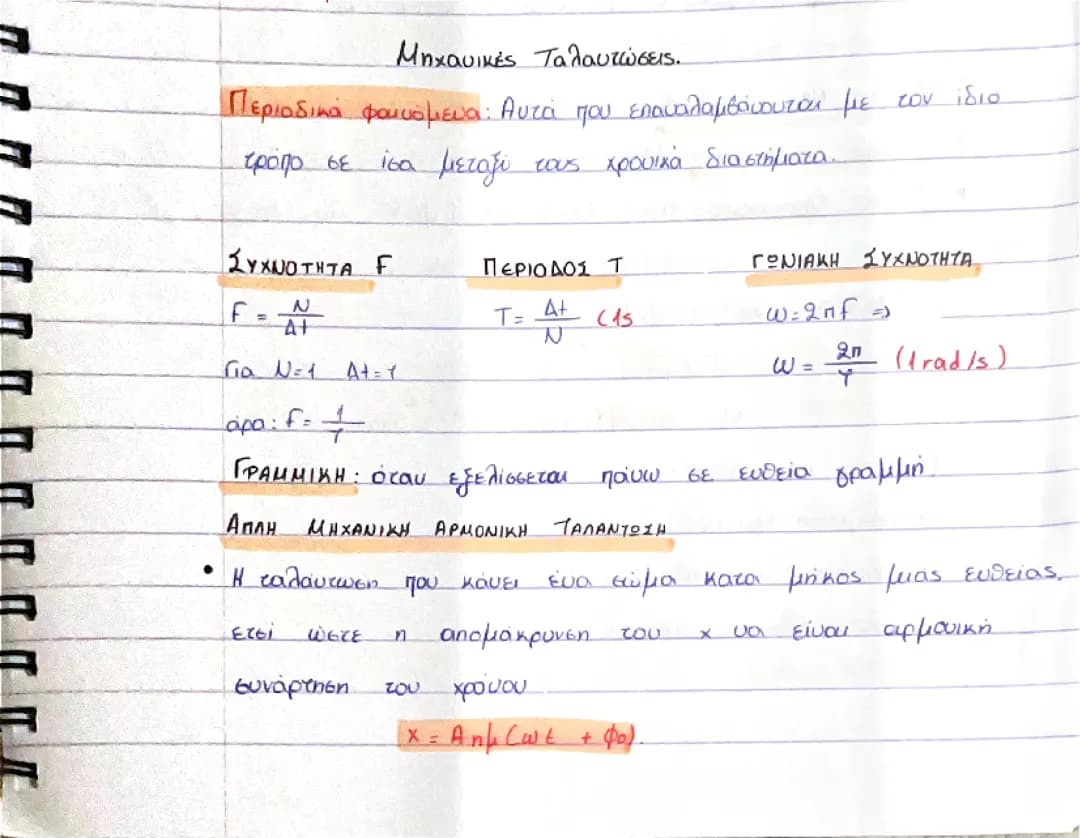 Μηχανικές Ταλαντώσεις.
Περιοδικά φαινόμενα: Αυτά που επαναλαμβάνονται με τον ίδιο
τρόπο σε ίσα μεταξύ τους χρονικά διαστήματα.
ΣΥΧΝΟΤΗΤΑ F ΠΕΡΙΟΔΟΣ Τ ΓΩΝΙΑΚΗ ΣΥΧΝΟΤΗΤΑ
F = N/Δt T = Δt/N (1s ω = 2πf ⇒
Για N=1 Δt=T ω = 2π/T (1 rad/s)
άρα: f = 1/T
ΓΡΑΜΜΙΚΗ: όταν εξελίσσεται πάνω σε ευθεία γραμμή.
ΑΠΛΗ ΜΗΧΑΝΙΚΗ ΑΡΜΟΝΙΚΗ ΤΑΛΑΝΤΩΣΗ
• Η ταλάντωση που κάνει ένα σώμα κατα μήκος μιας ευθείας.
ετσί ώστε η απομάκρυνση του x να είναι αρμονική
συνάρτηση του χρόνου
x = Aημ(ωt + φο).